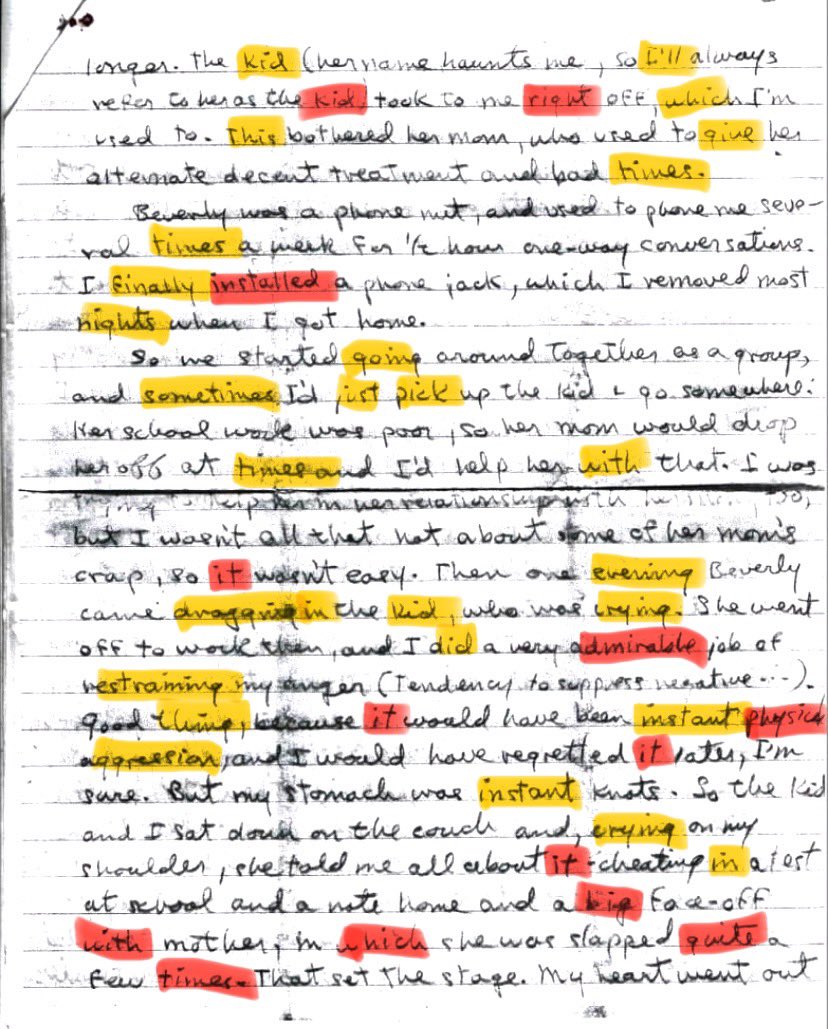 longer. The kid (her name haunts me, so I'll always
refer to her as the kid, took to me right off, which I'm
used to. This bothered her mom, who used to give her
alternate decent treatment and bad times.
Beverly was a phone nut, and used to phone me seve-
ral times a week for 1/2 hour one-way conversations.
I finally installed a phone jack, which I removed most
nights when I got home.
So we started going around together as a group,
and sometimes I'd just pick up the kid & go somewhere.
Her school work was poor, so her mom would drop
her off at times and I'd help her with that. I was
trying to help her in her relationship with
but I wasn't all that hot about some of her mom's
crap, so it wasn't easy. Then one evening Beverly
came dragging in the kid, who was crying. She went
off to work then, and I did a very admirable job of
restraining my anger (Tendency to suppress negative...).
Good thing, because it would have been instant physical
aggression, and I would have regretted it later, I'm
sure. But my stomach was instant knots. So the kid
and I sat down on the couch and, crying on my
shoulder, she told me all about it - cheating in a test
at school and a note home and a big face-off
with mother, in which she was slapped quite a
few times. That set the stage. My heart went out